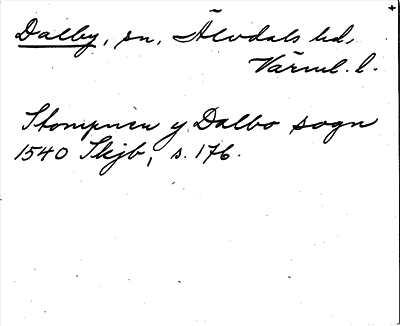 Dalby, sn, Älvdals hd,
Värml. l.
Stompnen y Dalbo sogn
1540 Skjb, s. 176.